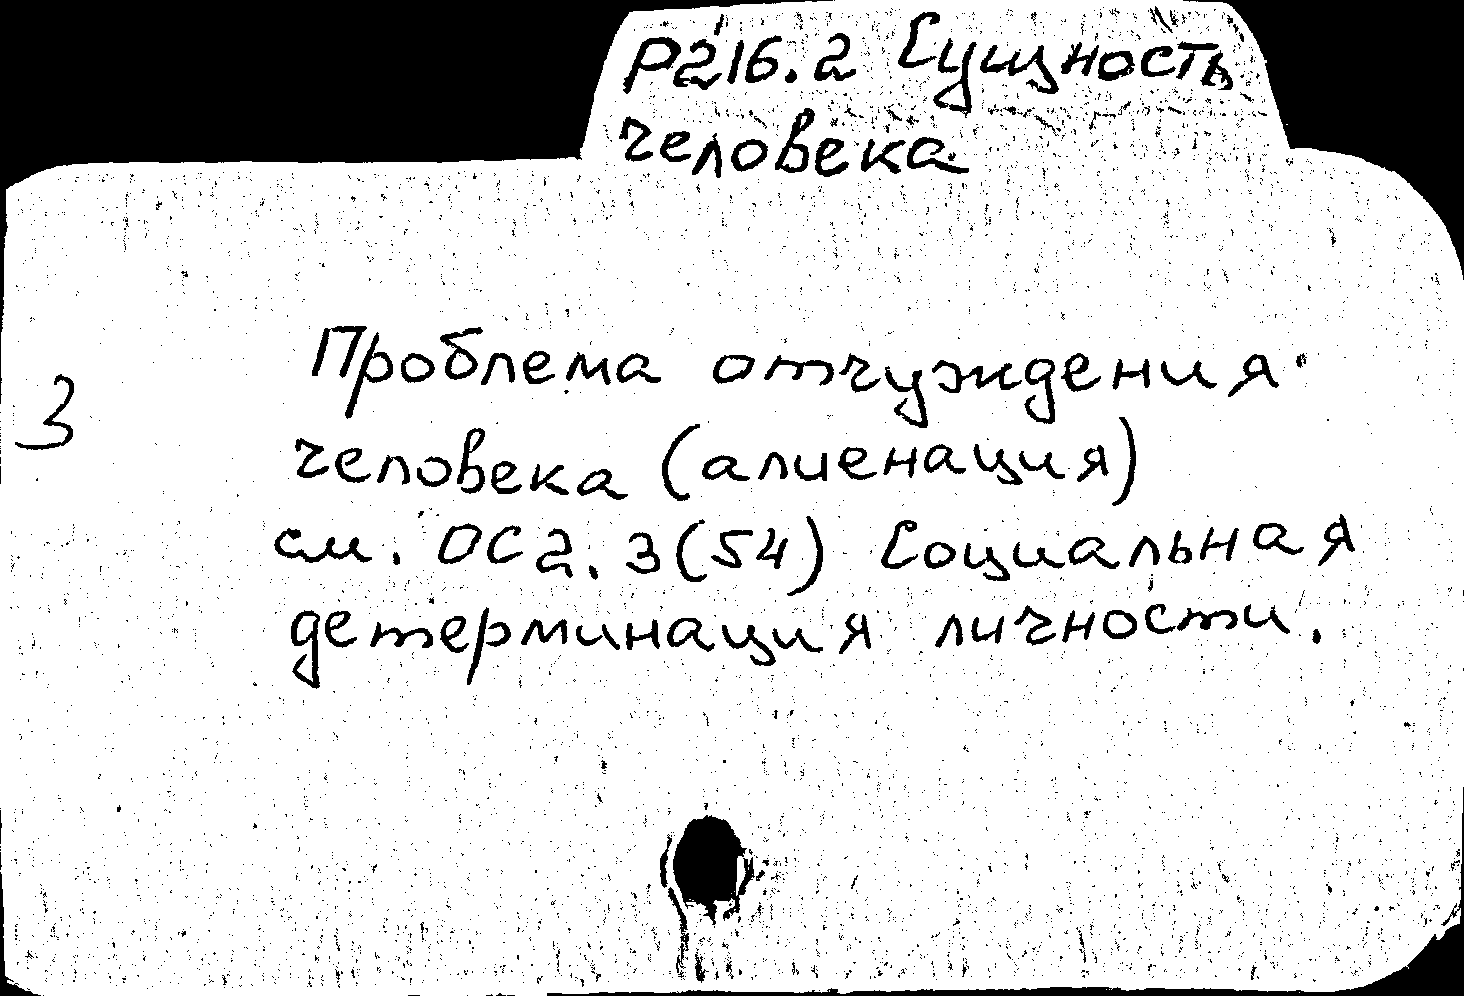 Р216.2 Сущность
человека
Проблема отчуждения
3
человека (алиенация)
см. ОС2.3(54) Социальная
детерминация личности.